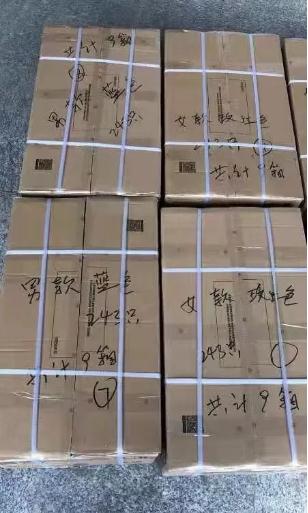 共计9箱
男款 蓝色
243只
女款玫红色
243只
共计9箱
男款 蓝色
243只
共计9箱
①
女款 玫红色
243只
①
共计9箱